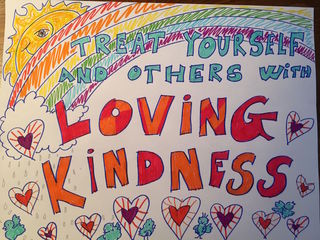 TREAT YOURSELF
AND OTHERS WiTH
LOVING
KiNDNESS